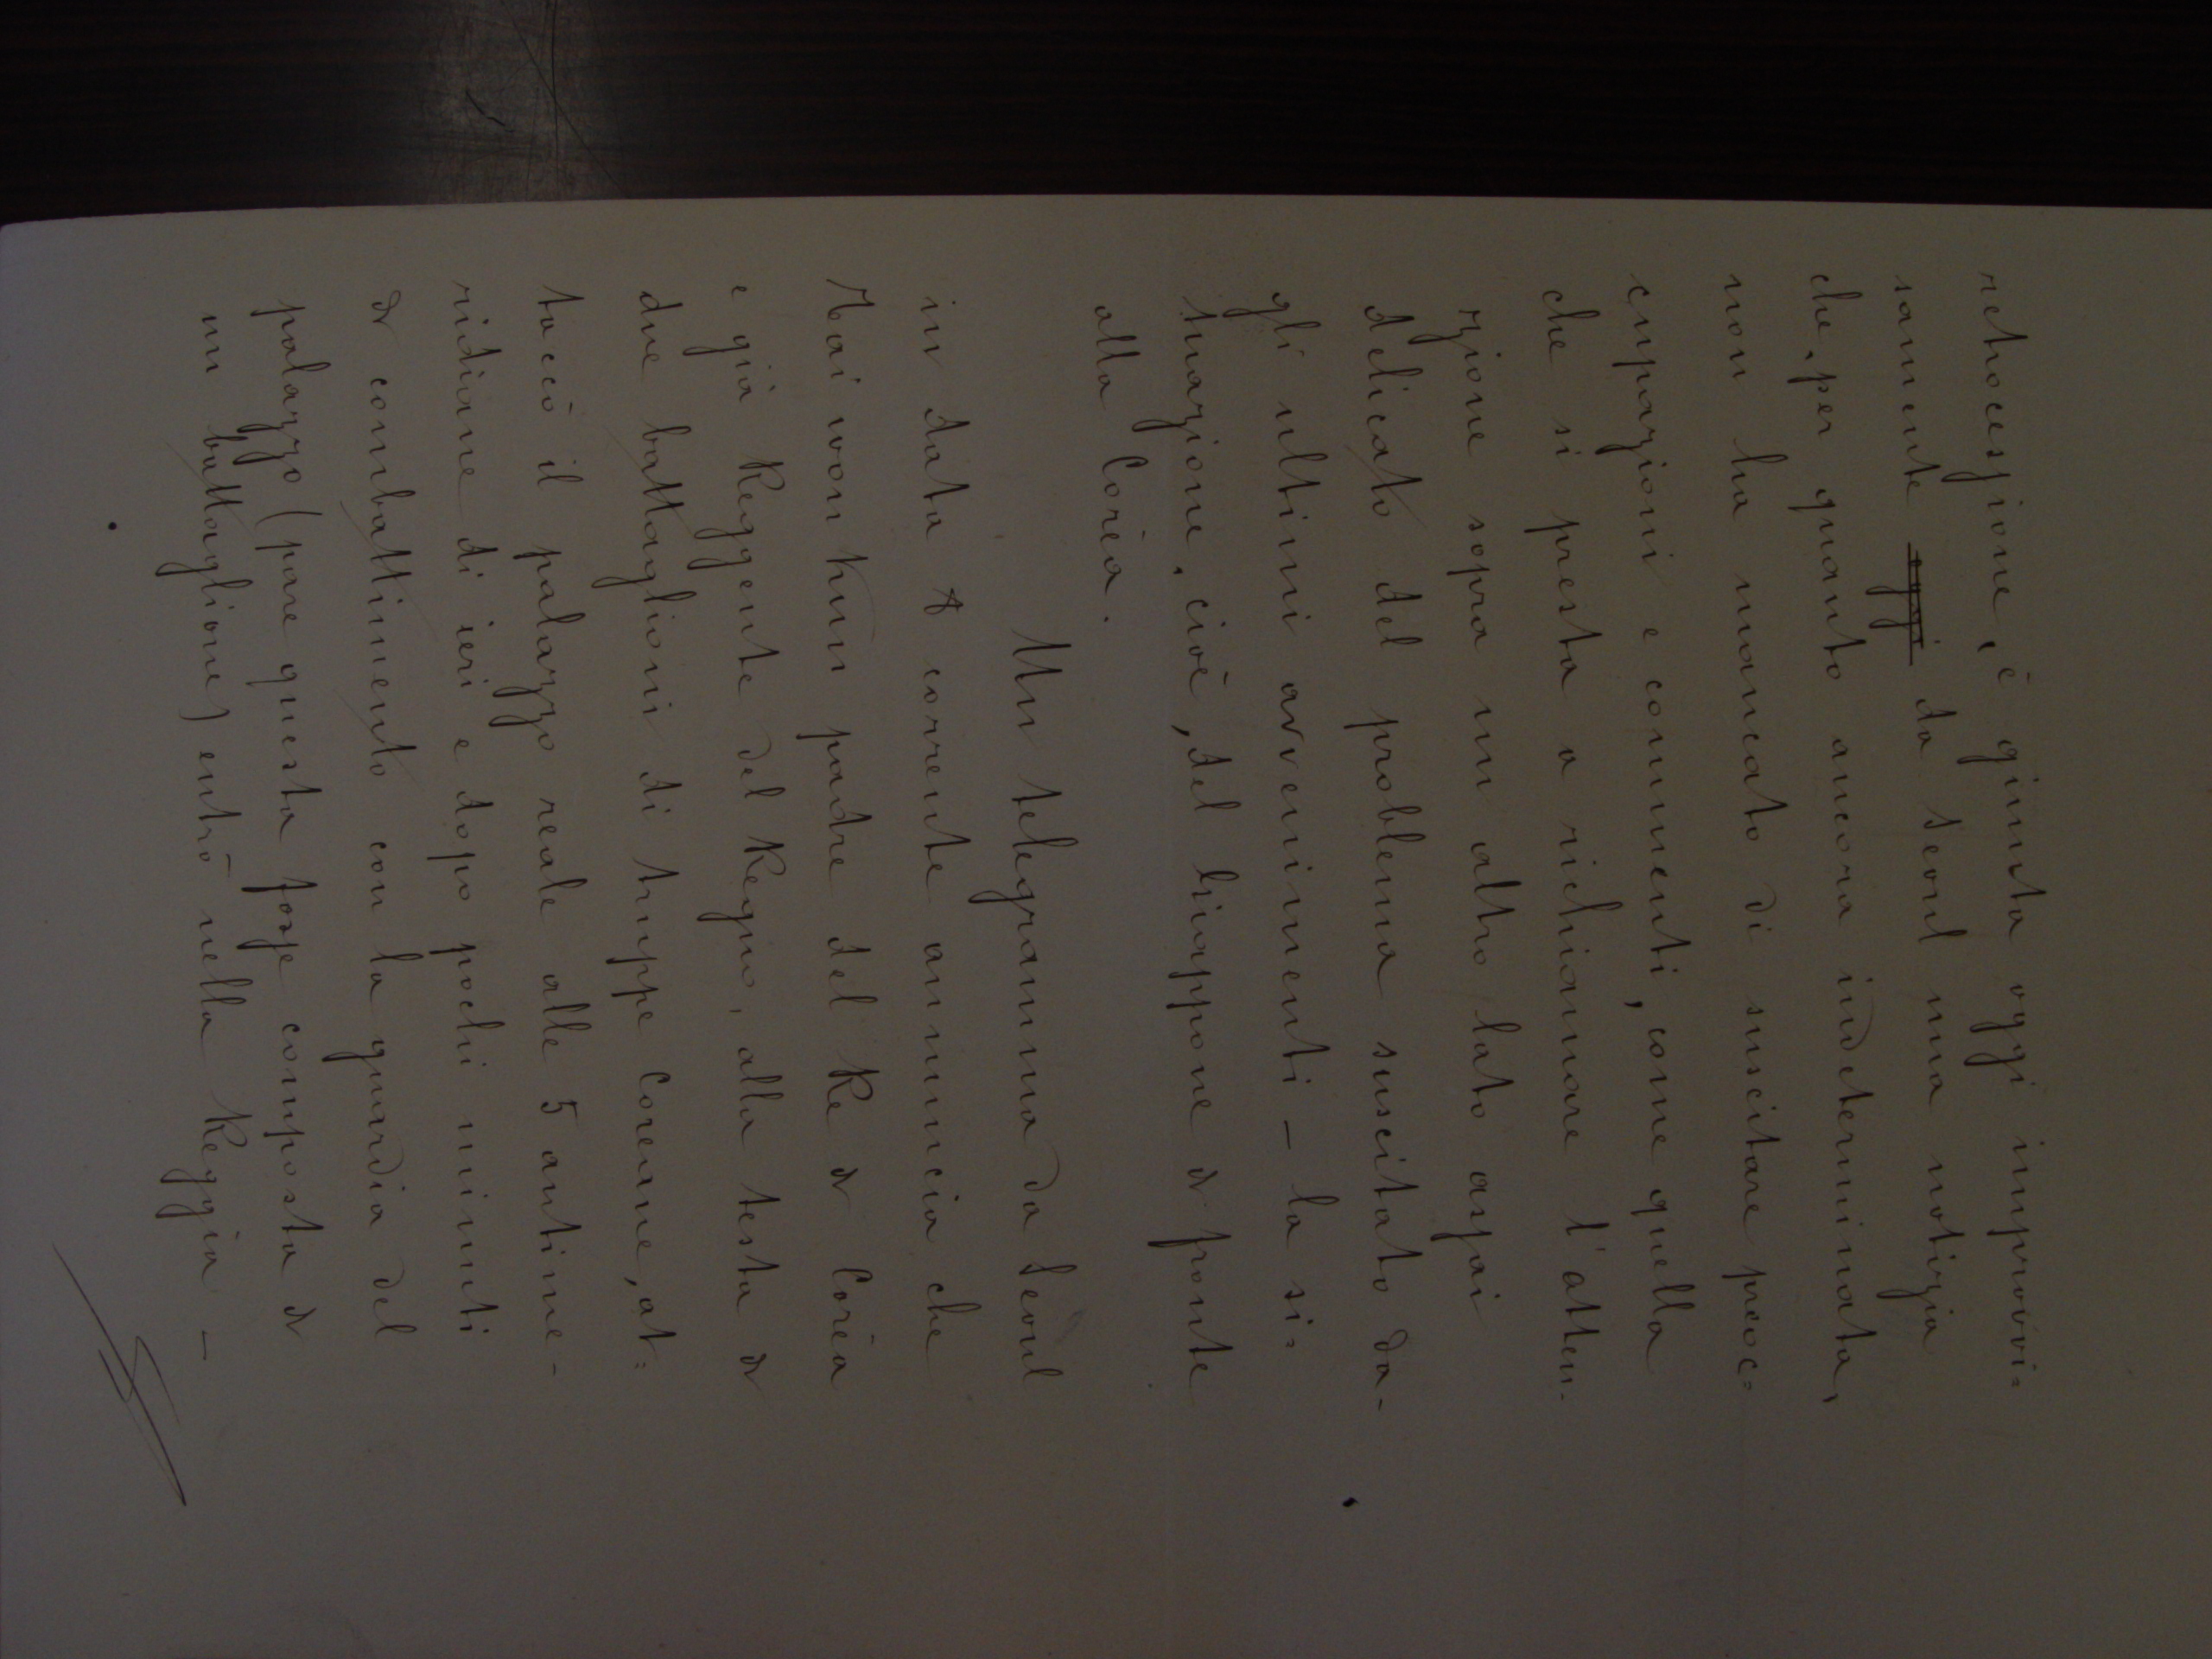 retrocessione, è giunta oggi improvvi=
samente oggi da Seoul una notizia
che, per quanto ancora indeterminata,
non ha mancato di suscitare preoc=
cupazioni e commenti, come quella
che si presta a richiamare l'atten-
zione sopra un altro lato assai
delicato del problema suscitato da-
gli ultimi avvenimenti – la si=
tuazione, cioè, del Giappone di fronte
alla Corèa.
Un telegramma da Seoul
in data 8 corrente annuncia che
Tai won Kun padre del Re di Corèa
e già Reggente del Regno, alla testa di
due battaglioni di truppe Coreane, at=
taccò il palazzo reale alle 5 antime-
ridiane di ieri e dopo pochi minuti
di combattimento con la guardia del
palazzo (pare questa fosse composta di
un battaglione) entrò nella Reggia –